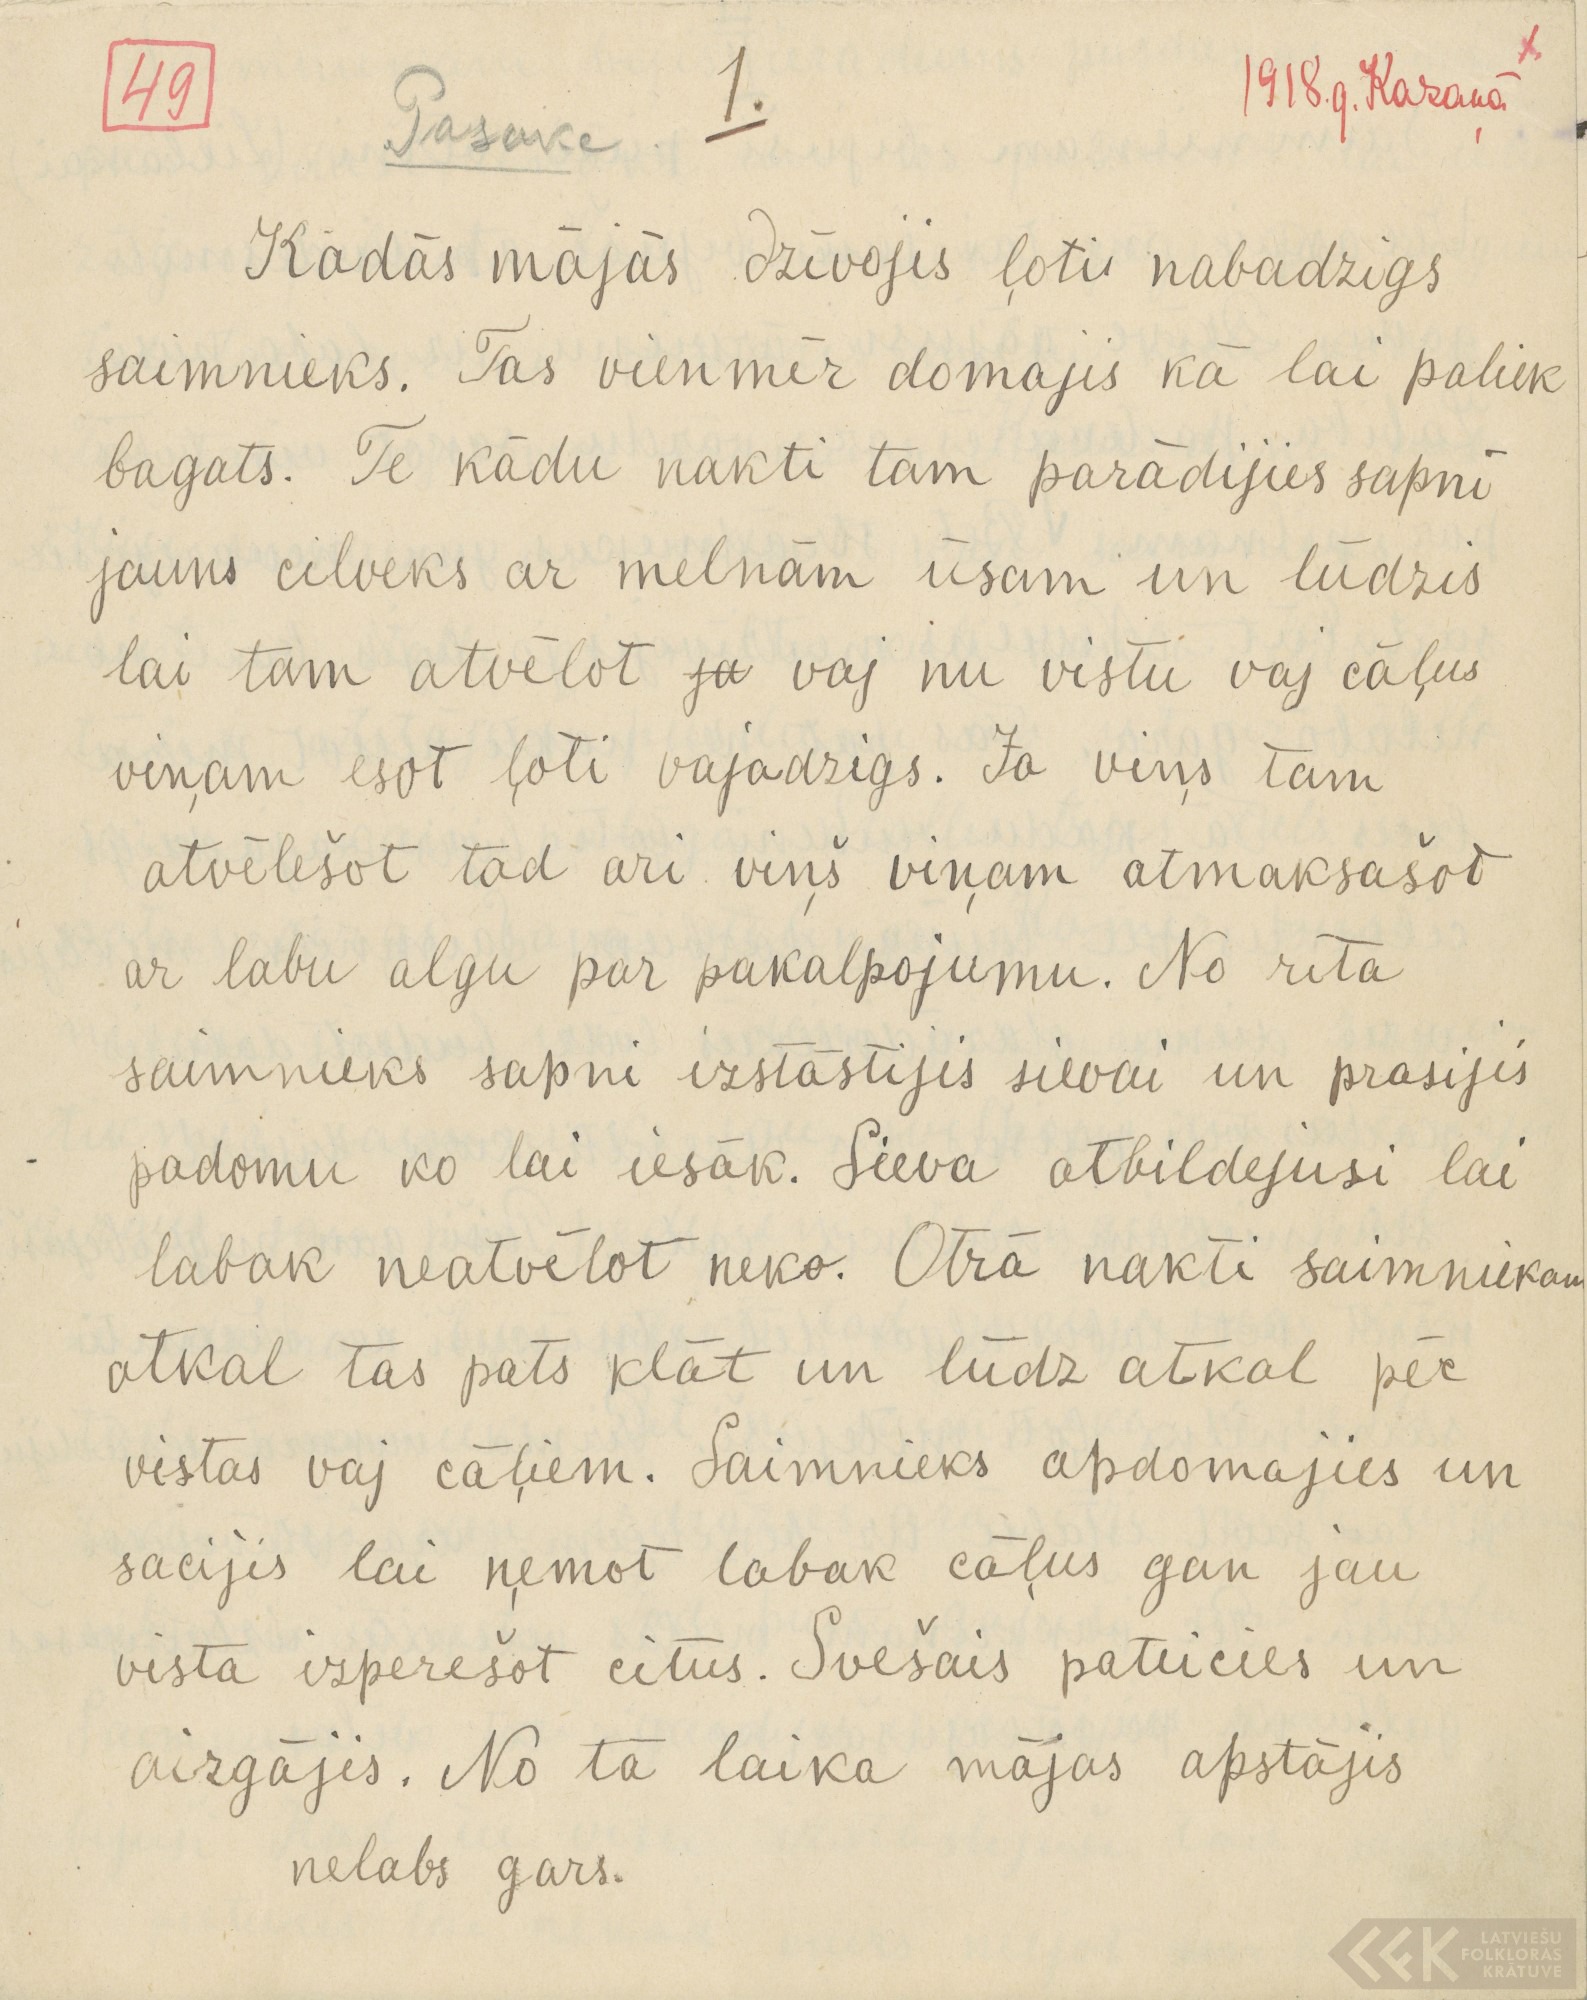 49
1.
1918.g. Kazaņā
Pasake
Kādās mājās dzīvojis ļoti nabadzigs
saimnieks. Tas vienmēr domajis kā lai paliek
bagats. Te kādu nakti tam parādijies sapnī
jauns cilveks ar melnām ūsam un lūdzis
lai tam atvēlot ja vaj nu vistu vaj cāļus
viņam esot ļoti vajadzigs. Ja viņs tam
atvēlešot tad ari viņš viņam atmaksašot
ar labu algu par pakalpojumu. No rīta
saimnieks sapni izstāstijis sievai un prasijis
padomu ko lai iesāk. Sieva atbildejusi lai
labak neatvēlot neko. Otrā nakti saimniekam
atkal tas pats klāt un lūdz atkal pēc
vistas vaj cāļiem. Saimnieks apdomajies un
sacijis lai ņemot labak cāļus gan jau
vista izperešot citus. Svešais pateicies un
aizgājis. No tā laika mājas apstājis
nelabs gars.
LATVIEŠU
FOLKLORAS
KRĀTUVE